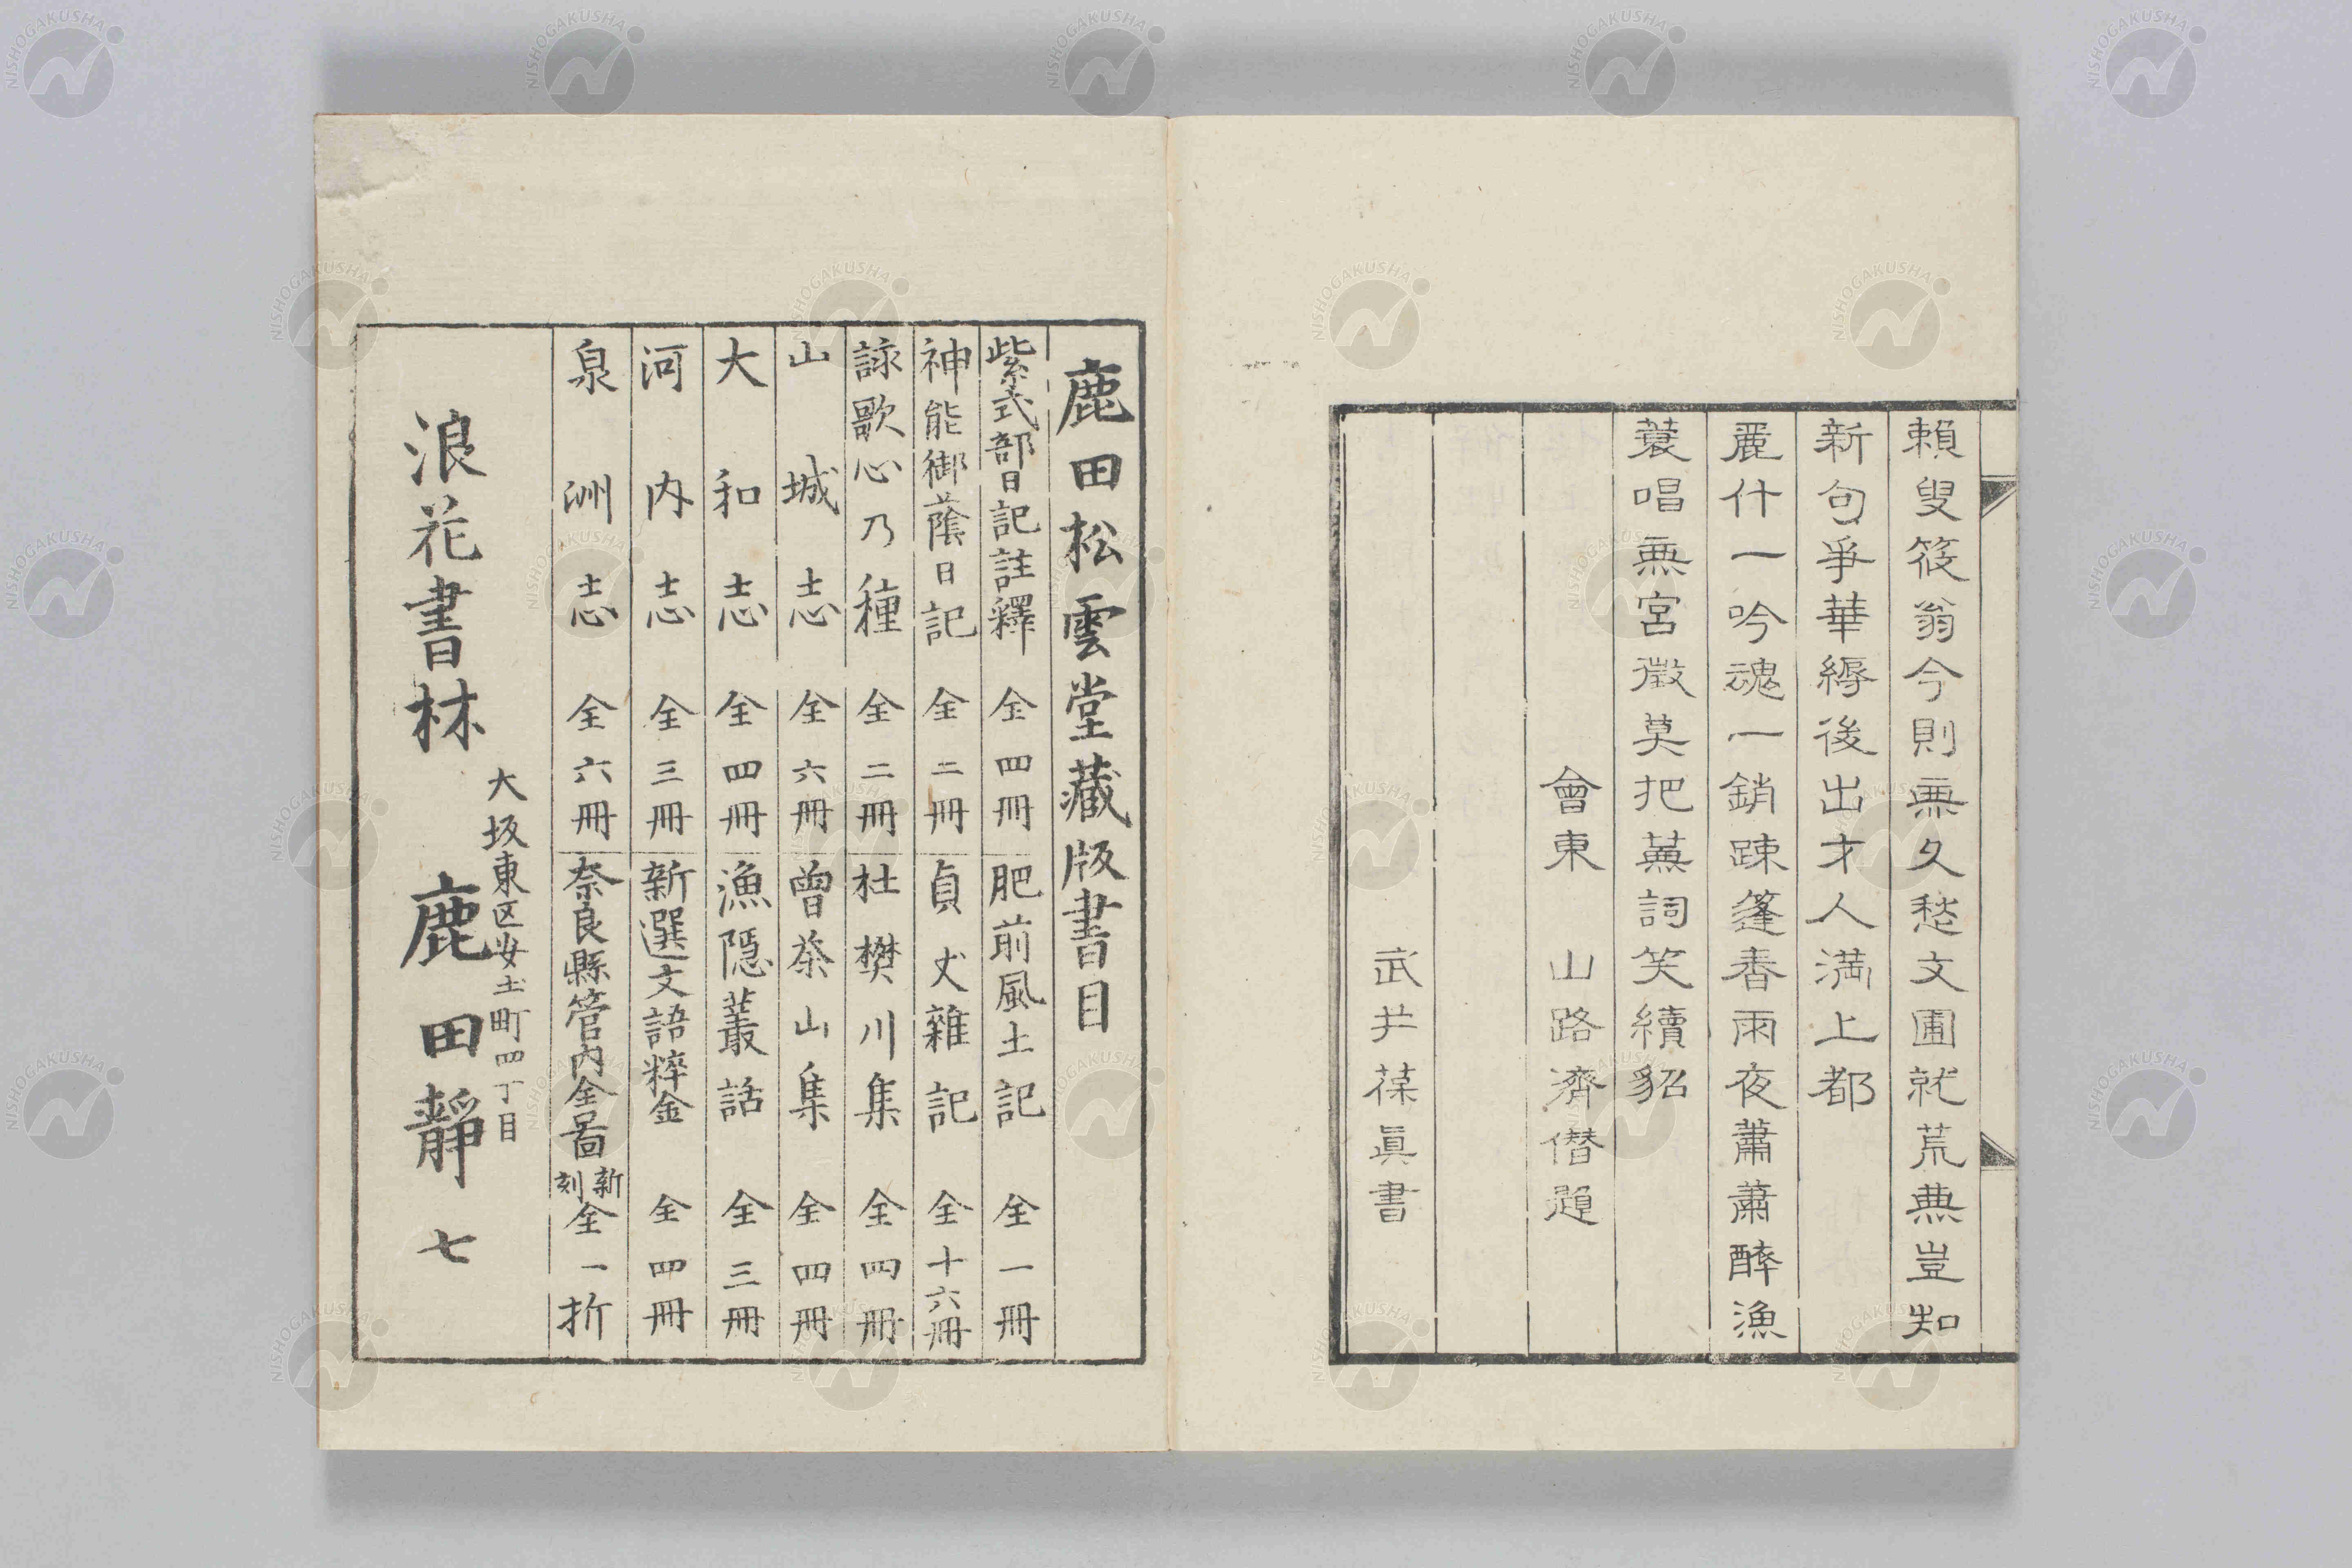 賴叟筱翁今則無久愁文圃就荒蕪豈知
新句爭華縟後出才人満上都
麗什一吟魂一銷疎篷春雨夜蕭蕭醉漁
蓑唱無宮徵莫把蕪詞笑續貂
會東 山路濟僭題
武井葆眞書
鹿田松雲堂藏版書目
紫式部日記註釋 全四冊 肥前風土記 全一冊
神能御蔭日記 全二冊 貞丈雜記 全十六冊
詠歌心乃種 全二冊 杜樊川集 全四冊
山城志 全六冊 曾茶山集 全四冊
大和志 全四冊 漁隱叢話 全三冊
河内志 全三冊 新選文語粹金 全四冊
泉洲志 全六冊 奈良縣管内全圖 新刻 全一折
大坂東区安土町四丁目
浪花書林 鹿田靜七
NISHOGAKUSHA